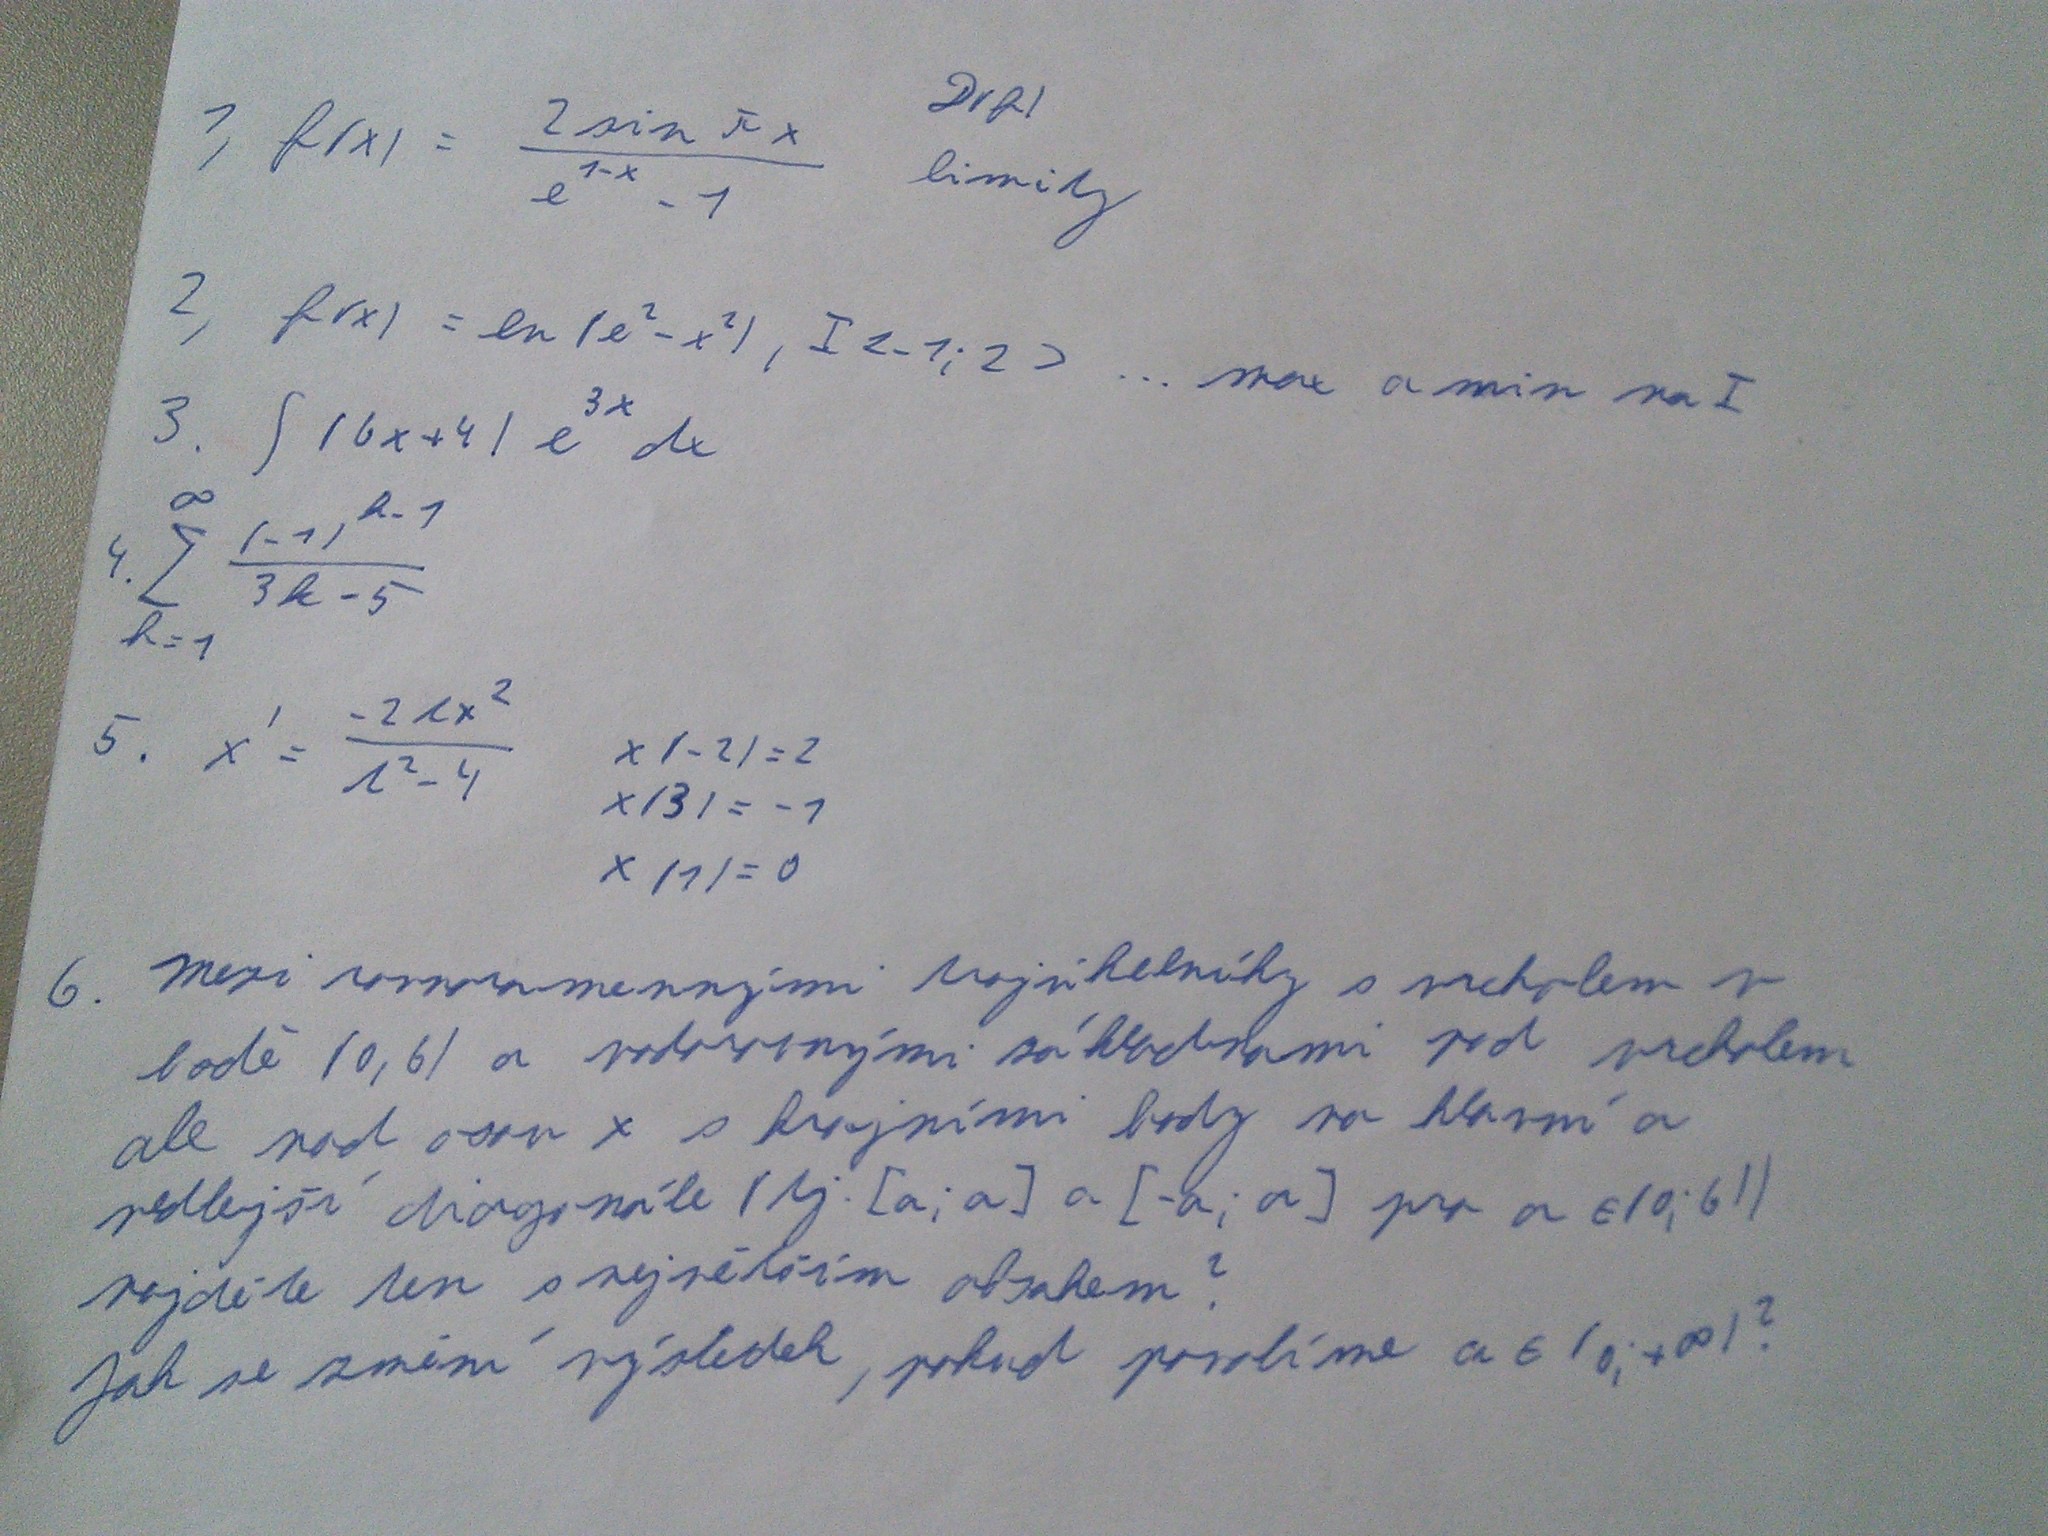 1, f(x) = 2 sin π x / e^(1-x) - 1 D(f)
limity
2, f(x) = ln (e² - x²), I <-1; 2> ... max a min na I
3. ∫ (6x+4) e^(3x) dx
4. ∑_(k=1)^∞ (-1)^(k-1) / 3k - 5
5. x' = -2tx² / t² - 4 x(-2) = 2
x(3) = -1
x(1) = 0
6. Mezi rovnoramennými trojúhelníky s vrcholem v
bodě (0,6) a vodorovnými základnami pod vrcholem
ale nad osou x s krajními body na hlavní a
vedlejší diagonále (tj. [a; a] a [-a; a] pro a ∈ (0; 6))
najděte ten s největším obsahem?
Jak se změní výsledek, pokud povolíme a ∈ (0; +∞)?